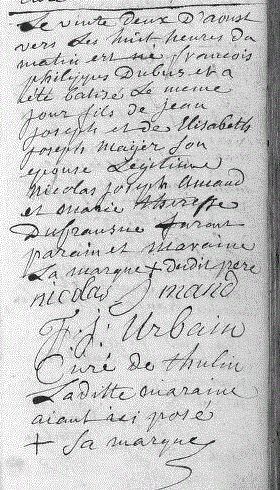 Le vinte deux D'aoust
vers Les huit heures du
matin est né françois
philippes Dubus et a
été batisé Le meme
jour fils de jean
joseph et de Elisabeth
joseph maijer Son
epouse Legitime
nicolas joseph Amand
et marie theresse
Dufrausne furont
parain et maraine
La marque + dudit pere
nicolas J mand
F: j: Urbain
Curé de thulin
Laditte maraine
aiant ici posé
+ Sa marque